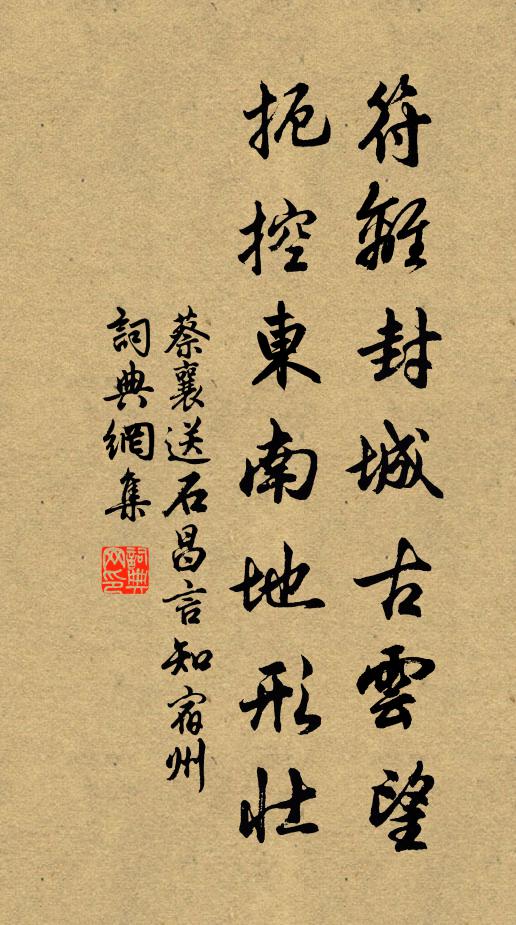 符離封城古雲望
扼控東南地形壯
蔡襄送石昌言知宿州
詞典網集